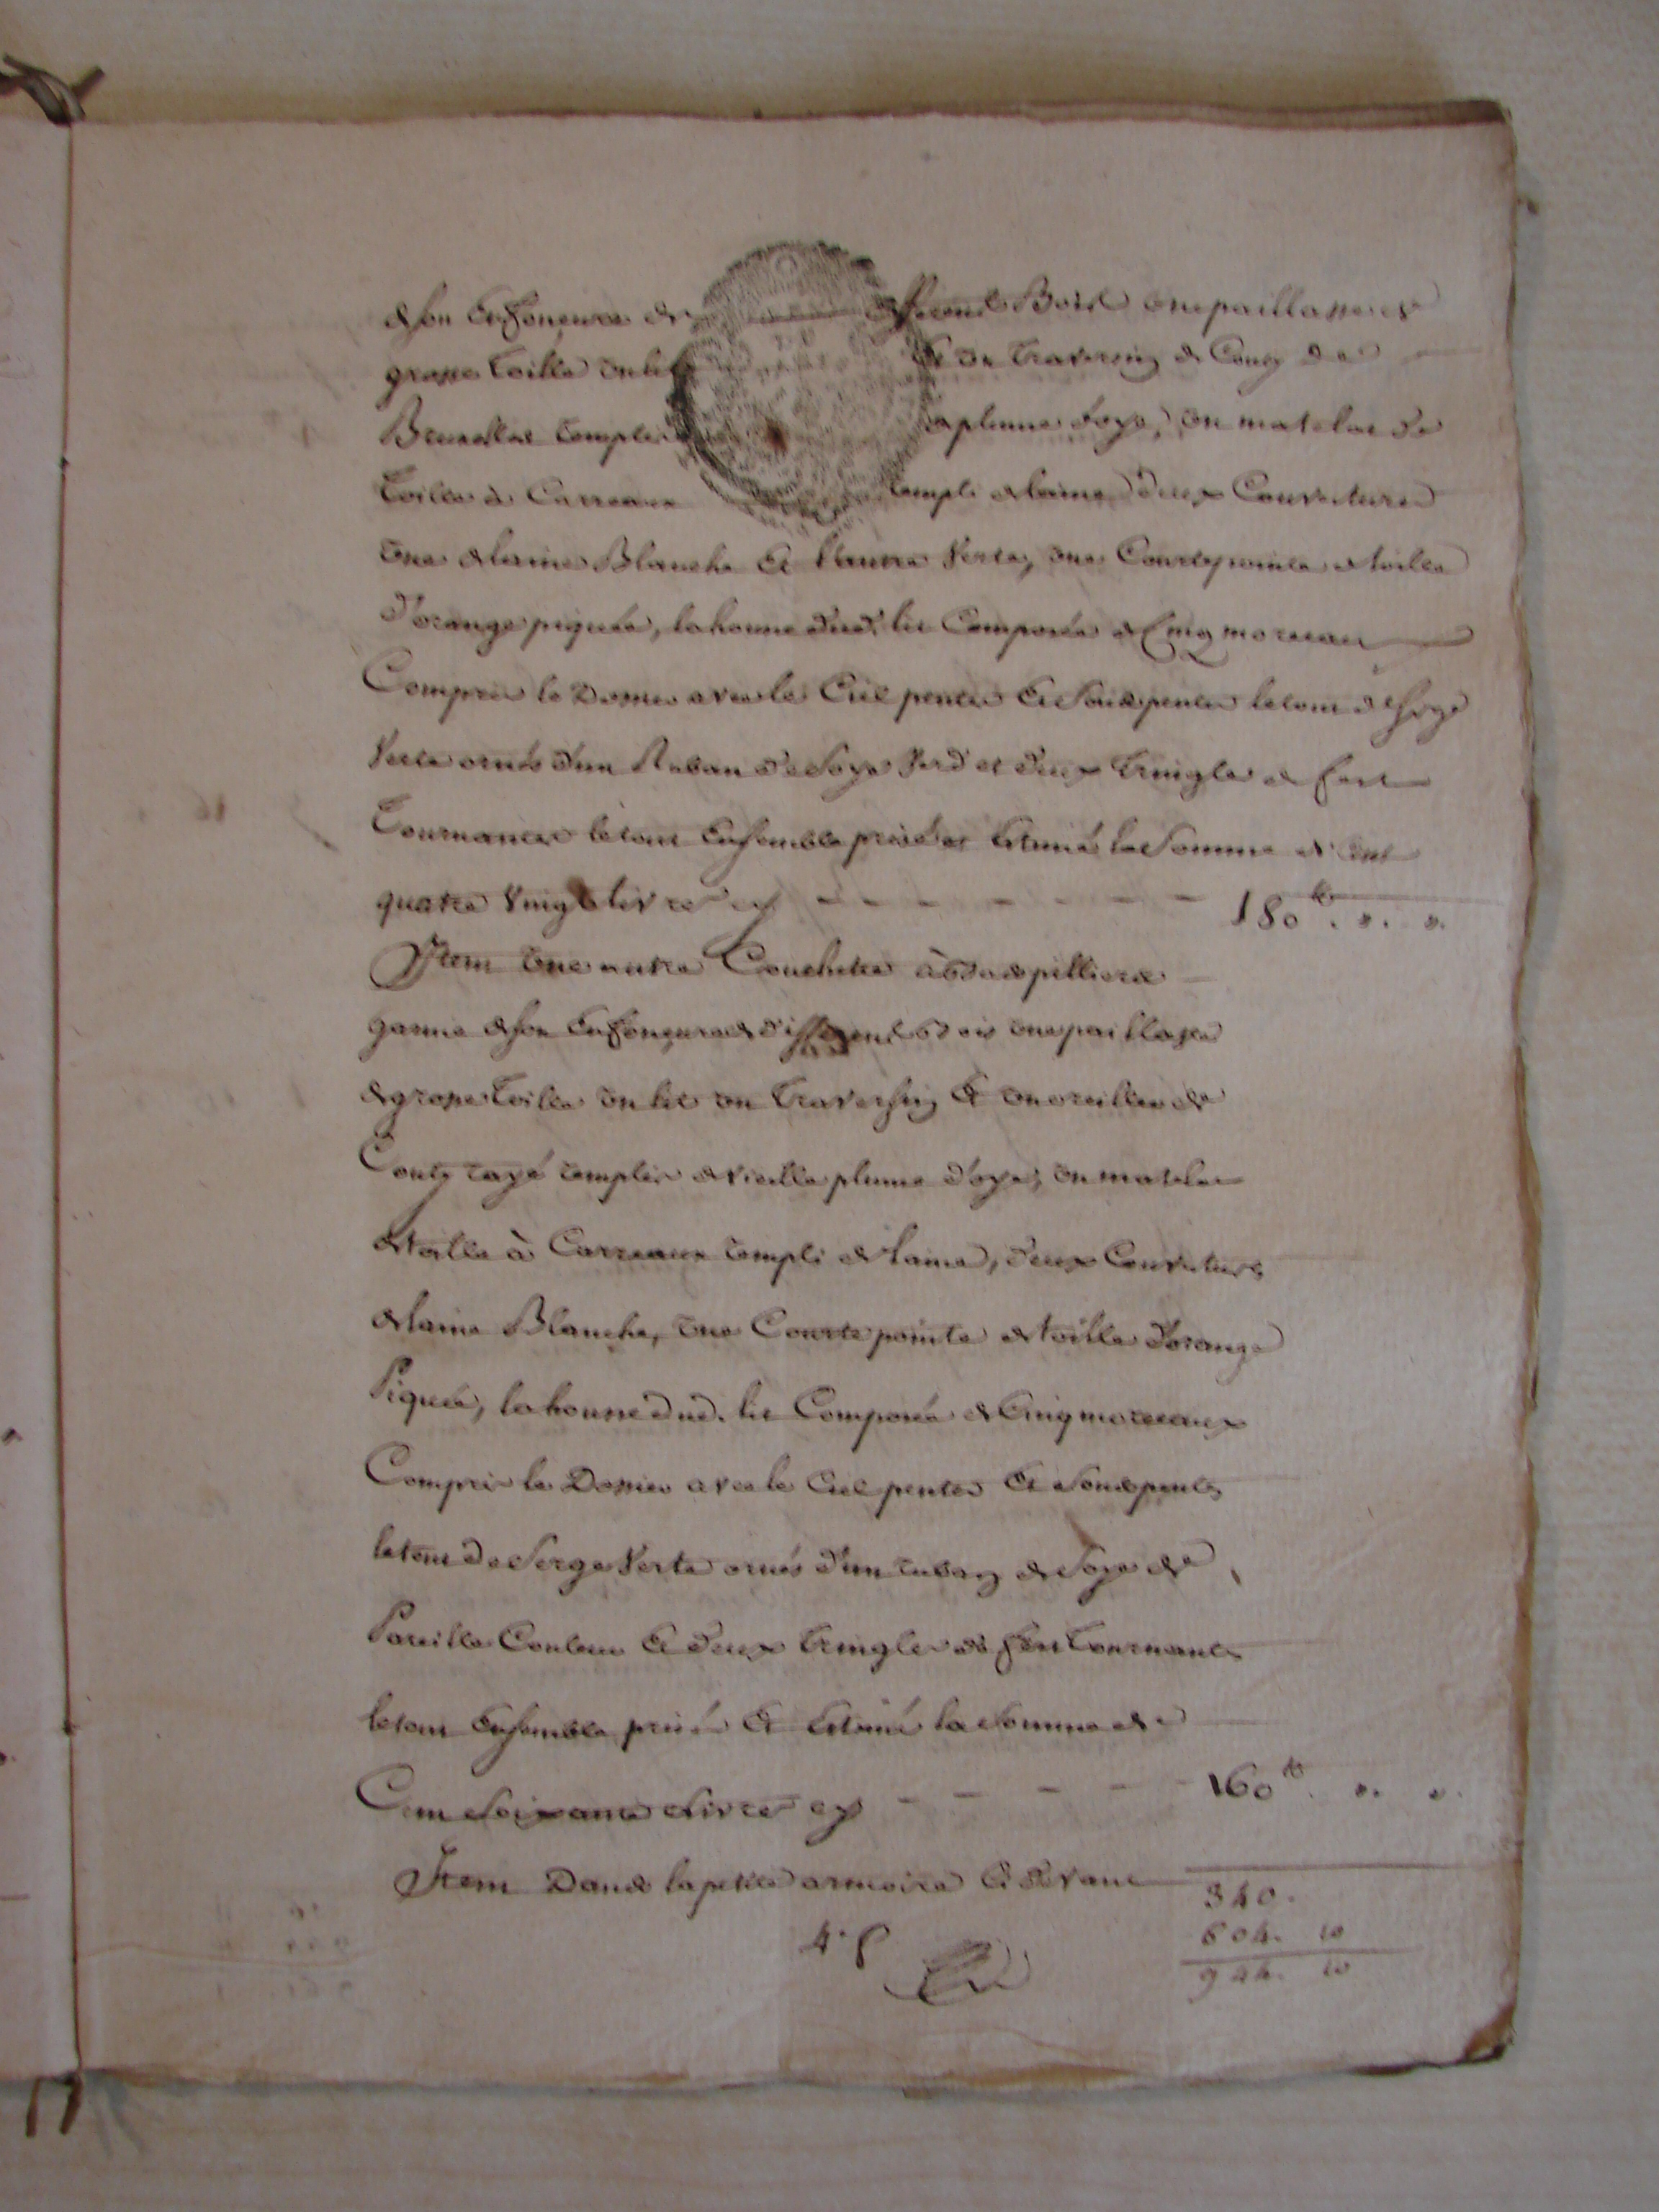 de son Enfonçure de différends Bois une paillasse de
grosse toille un lit et un traversin de Couty de
Bruxelles remplis de plume d'oye, un matelas de
toille à Carreaux rempli de laine deux Couvertures
une de laine Blanche et l'autre verte, une Courtepointe de toille
d'orange piquée, la housse dud. lit Composée de Cinq morceaux
Compris le Dossier avec le Ciel pentes et souspentes le tout de serge
verte ornés d'un Ruban de Soye verd et deux tringles de fert
tournantes le tout Ensemble prisé et Estimé la Somme de Cent
quatre vingt livres cy - - - - - - - - 180 ₶. ". ".
Item une autre Couchette à bas pilliers
garnie de son Enfonçure de différends bois une paillasse
de grosse toille un lit un traversin et un oreiller de
Couty rayé remplis de vieille plume d'oye, un matelas
de toille à Carreaux rempli de laine, deux Couvertures
de laine Blanche, une Courte pointe de toille d'orange
Piquée, la housse dud. lit Composée de Cinq morceaux
Compris le Dossier avec le Ciel pentes et souspentes
le tout de Serge verte ornés d'un ruban de Soye de
Pareille Couleur et deux tringles de fer tournantes
le tout Ensemble prisé et Estimé la Somme de
Cent Soixante livres cy - - - - 160 ₶. ". ".
Item Dans la petite armoire Ci devant
340.
604. 10
944. 10